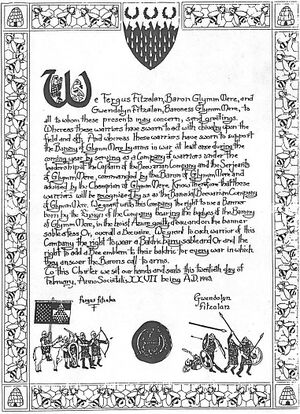 We Fergus Fitzalan, Baron Glymm Mere, and
Gwendolyn Fitzalan, Baroness Glymm Mere, to
all to whom these presents may concern, send greetings.
Whereas these warriors have sworn to act with chivalry upon the
field and off, And whereas these warriors have sworn to support
the Barony of Glymm Mere by arms in war at least once during the
coming year by serving as a Company of warriors under the
leadership of the Captain of the Company and the Serjeants
of Glymm Mere, commanded by the Baron of Glymm Mere and
advised by the Champion of Glymm Mere, Know Therefore that these
warriors will be recognized by us as the Company
of Glymm Mere. We grant unto this Company the right to use a Banner
borne by the of the Company bearing the of the Barony
of Glymm Mere, in the and on the banner
sable a Or, overall a. We grant to each warrior of this
Company the right to wear a Baldric barry sable and Or and the
right to add a Bee emblem to their baldric for every war in which
they answer the Barons call to arms.
To this Charter we set our hands and seals this twentieth day of
February, Anno Societatis XXVII being A.D. 1993.
Fergus Fitzalan
Gwendolyn
Fitzalan